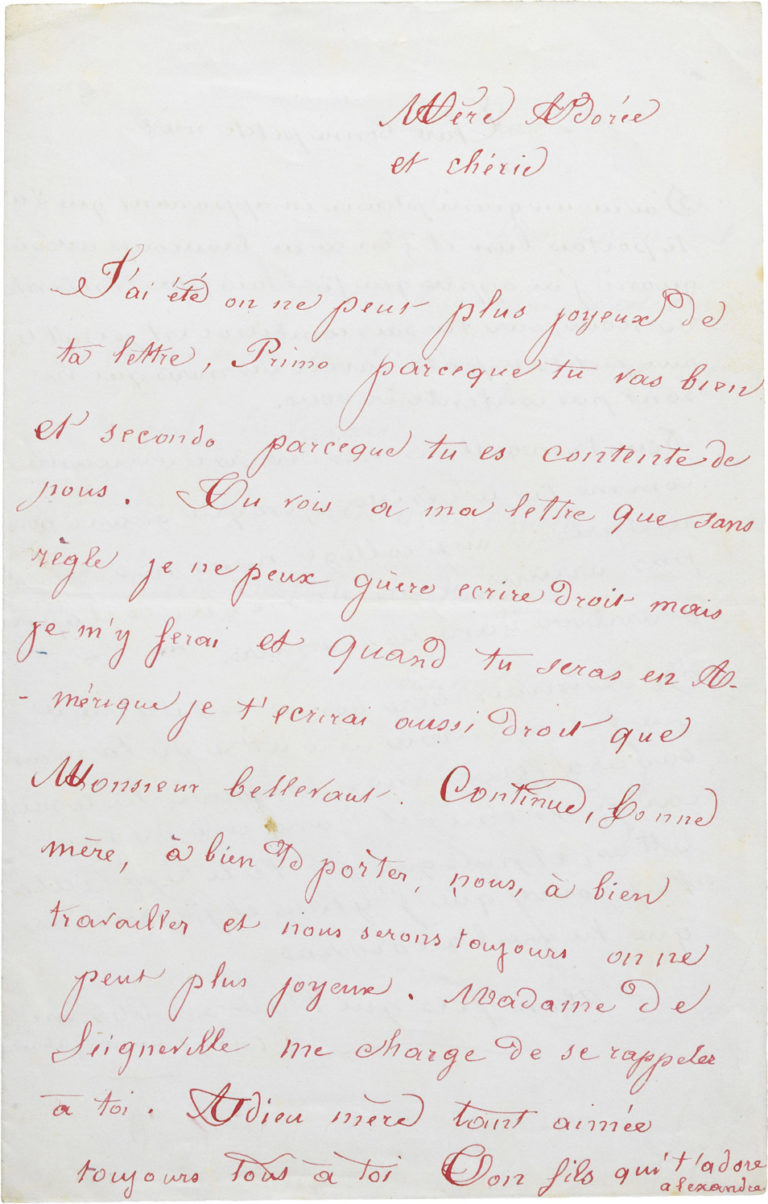 Mère Adorée
et chérie
J'ai été on ne peut plus joyeux de
ta lettre, Primo parceque tu vas bien
et secondo parceque tu es contente de
nous. Tu vois a ma lettre que sans
règle je ne peux guère ecrire droit mais
je m'y ferai et quand tu seras en A-
- mérique je t'ecrirai aussi droit que
Monsieur bellevaut. Continue, bonne
mère, à bien te porter, nous, à bien
travailler et nous serons toujours on ne
peut plus joyeux. Madame de
Seigneville me charge de se rappeler
à toi. Adieu mère tant aimée
toujours tous à toi Ton fils qui t'adore
alexandre